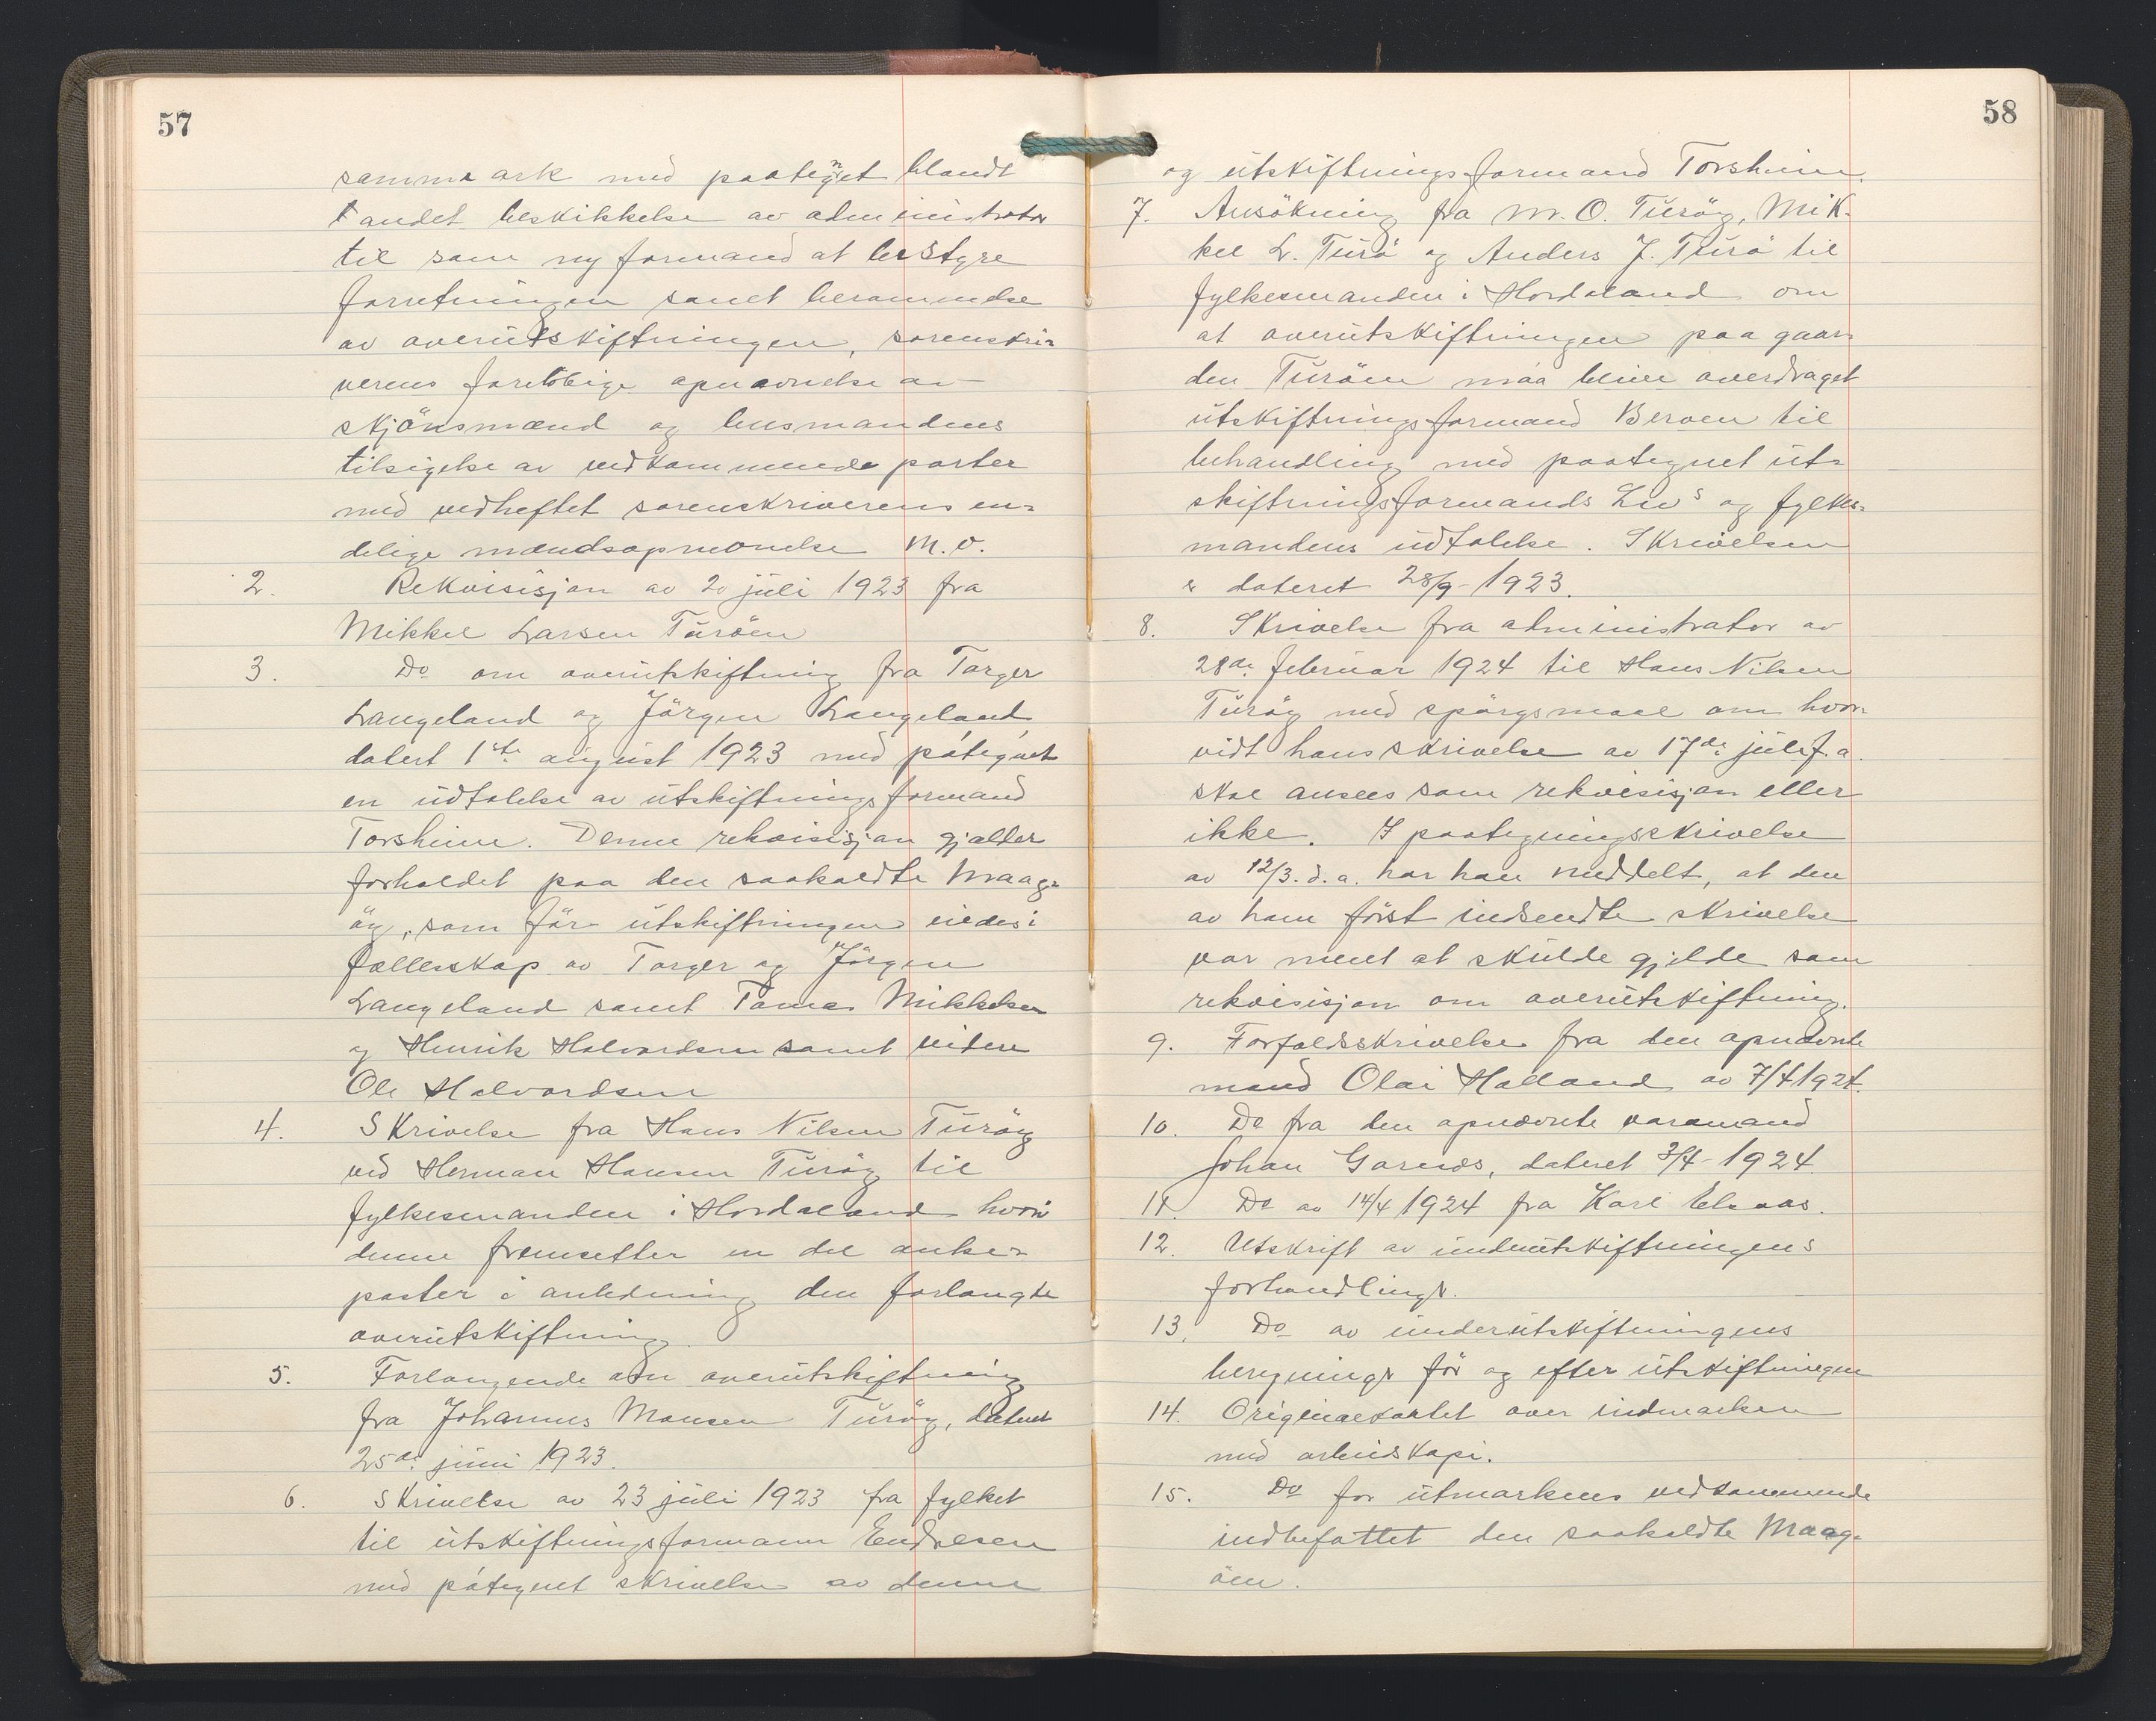 57
samme ark med paategnet blandt
andet beskikkelse av administrator
til som ny formand at bestyre
forretningen samt berammelse
av overutskiftningen, sorenskri=
verens foreløbige opnævnelse av
skjönsmænd og lensmandens
tilsigelse av vedkommende parter
med vedheftet sorenskriverens en=
delige mandsopnævnelse m.v.
2. Rekvisisjon av 20 juli 1923 fra
Mikkel Larsen Turöen
3. Do om overutskiftning fra Torger
Langeland og Jörgen Langeland,
datert 1ste august 1923 med påtegnet
en udtalelse av utskiftningsformand
Torsheim. Denne rekvisisjon gjælder
forholdet paa den saakaldte Maag=
öy, som för utskiftningen eiedes i
fællesskap av Torger og Jörgen
Langeland samt Tomas Mikkelsen
og Henrik Halvordsen samt videre
Ole Halvordsen
4. Skrivelse fra Hans Nilsen Turöy
ved Herman Hansen Turöy til
fylkesmanden i Hordaland hvori
denne fremsetter en del anke=
poster i anledning den forlangte
overutskiftning
5. Forlangende om overutskiftning
fra Johannes Monsen Turöy, datert
25de juni 1923.
6. Skrivelse av 23 juli 1923 fra fylket
til utskiftningsformann Endresen
med påtegnet skrivelse av denne
58
og utskiftningsformand Torsheim.
7. Ansökning fra M. O. Turöy, Mik=
kel L. Turö og Anders J. Turö til
fylkesmanden i Hordaland om
at overutskiftningen paa gaar=
den Turöen maa bliver overdraget
utskiftningsformand Berven til
behandling med paategnet ut=
skiftningsformands Lies og fylkes=
mandens udtalelse. Skrivelsen
er dateret 28/9-1923.
8. Skrivelse fra administrator av
28de februar 1924 til Hans Nilsen
Turöy med spörgsmaal om hvor=
vidt hans skrivelse av 17de juli f.a.
skal ansees som rekvisisjon eller
ikke. I paategningsskrivelse
av 12/3. d.a. har han meddelt, at den
av ham först indsendte skrivelse
var ment at skulde gjelde som
rekvisisjon om overutskiftning.
9. Forfaldsskrivelse fra den opnævnte
mand Olai Halland av 7/4 1924.
10. Do fra den opnævnte varamand
Johan Garnes, dateret 3/4-1924.
11. Do av 14/4 1924 fra Karl
12. Utskrift av underutskiftningens
forhandlinger.
13. Do av underutskiftningens
beregninger för og efter utskiftningen
14. Originalkartet over indmarken
med arbeidskopi.
15. Do for utmarkens vedkommende
indbefattet den saakaldte Maag=
öen.